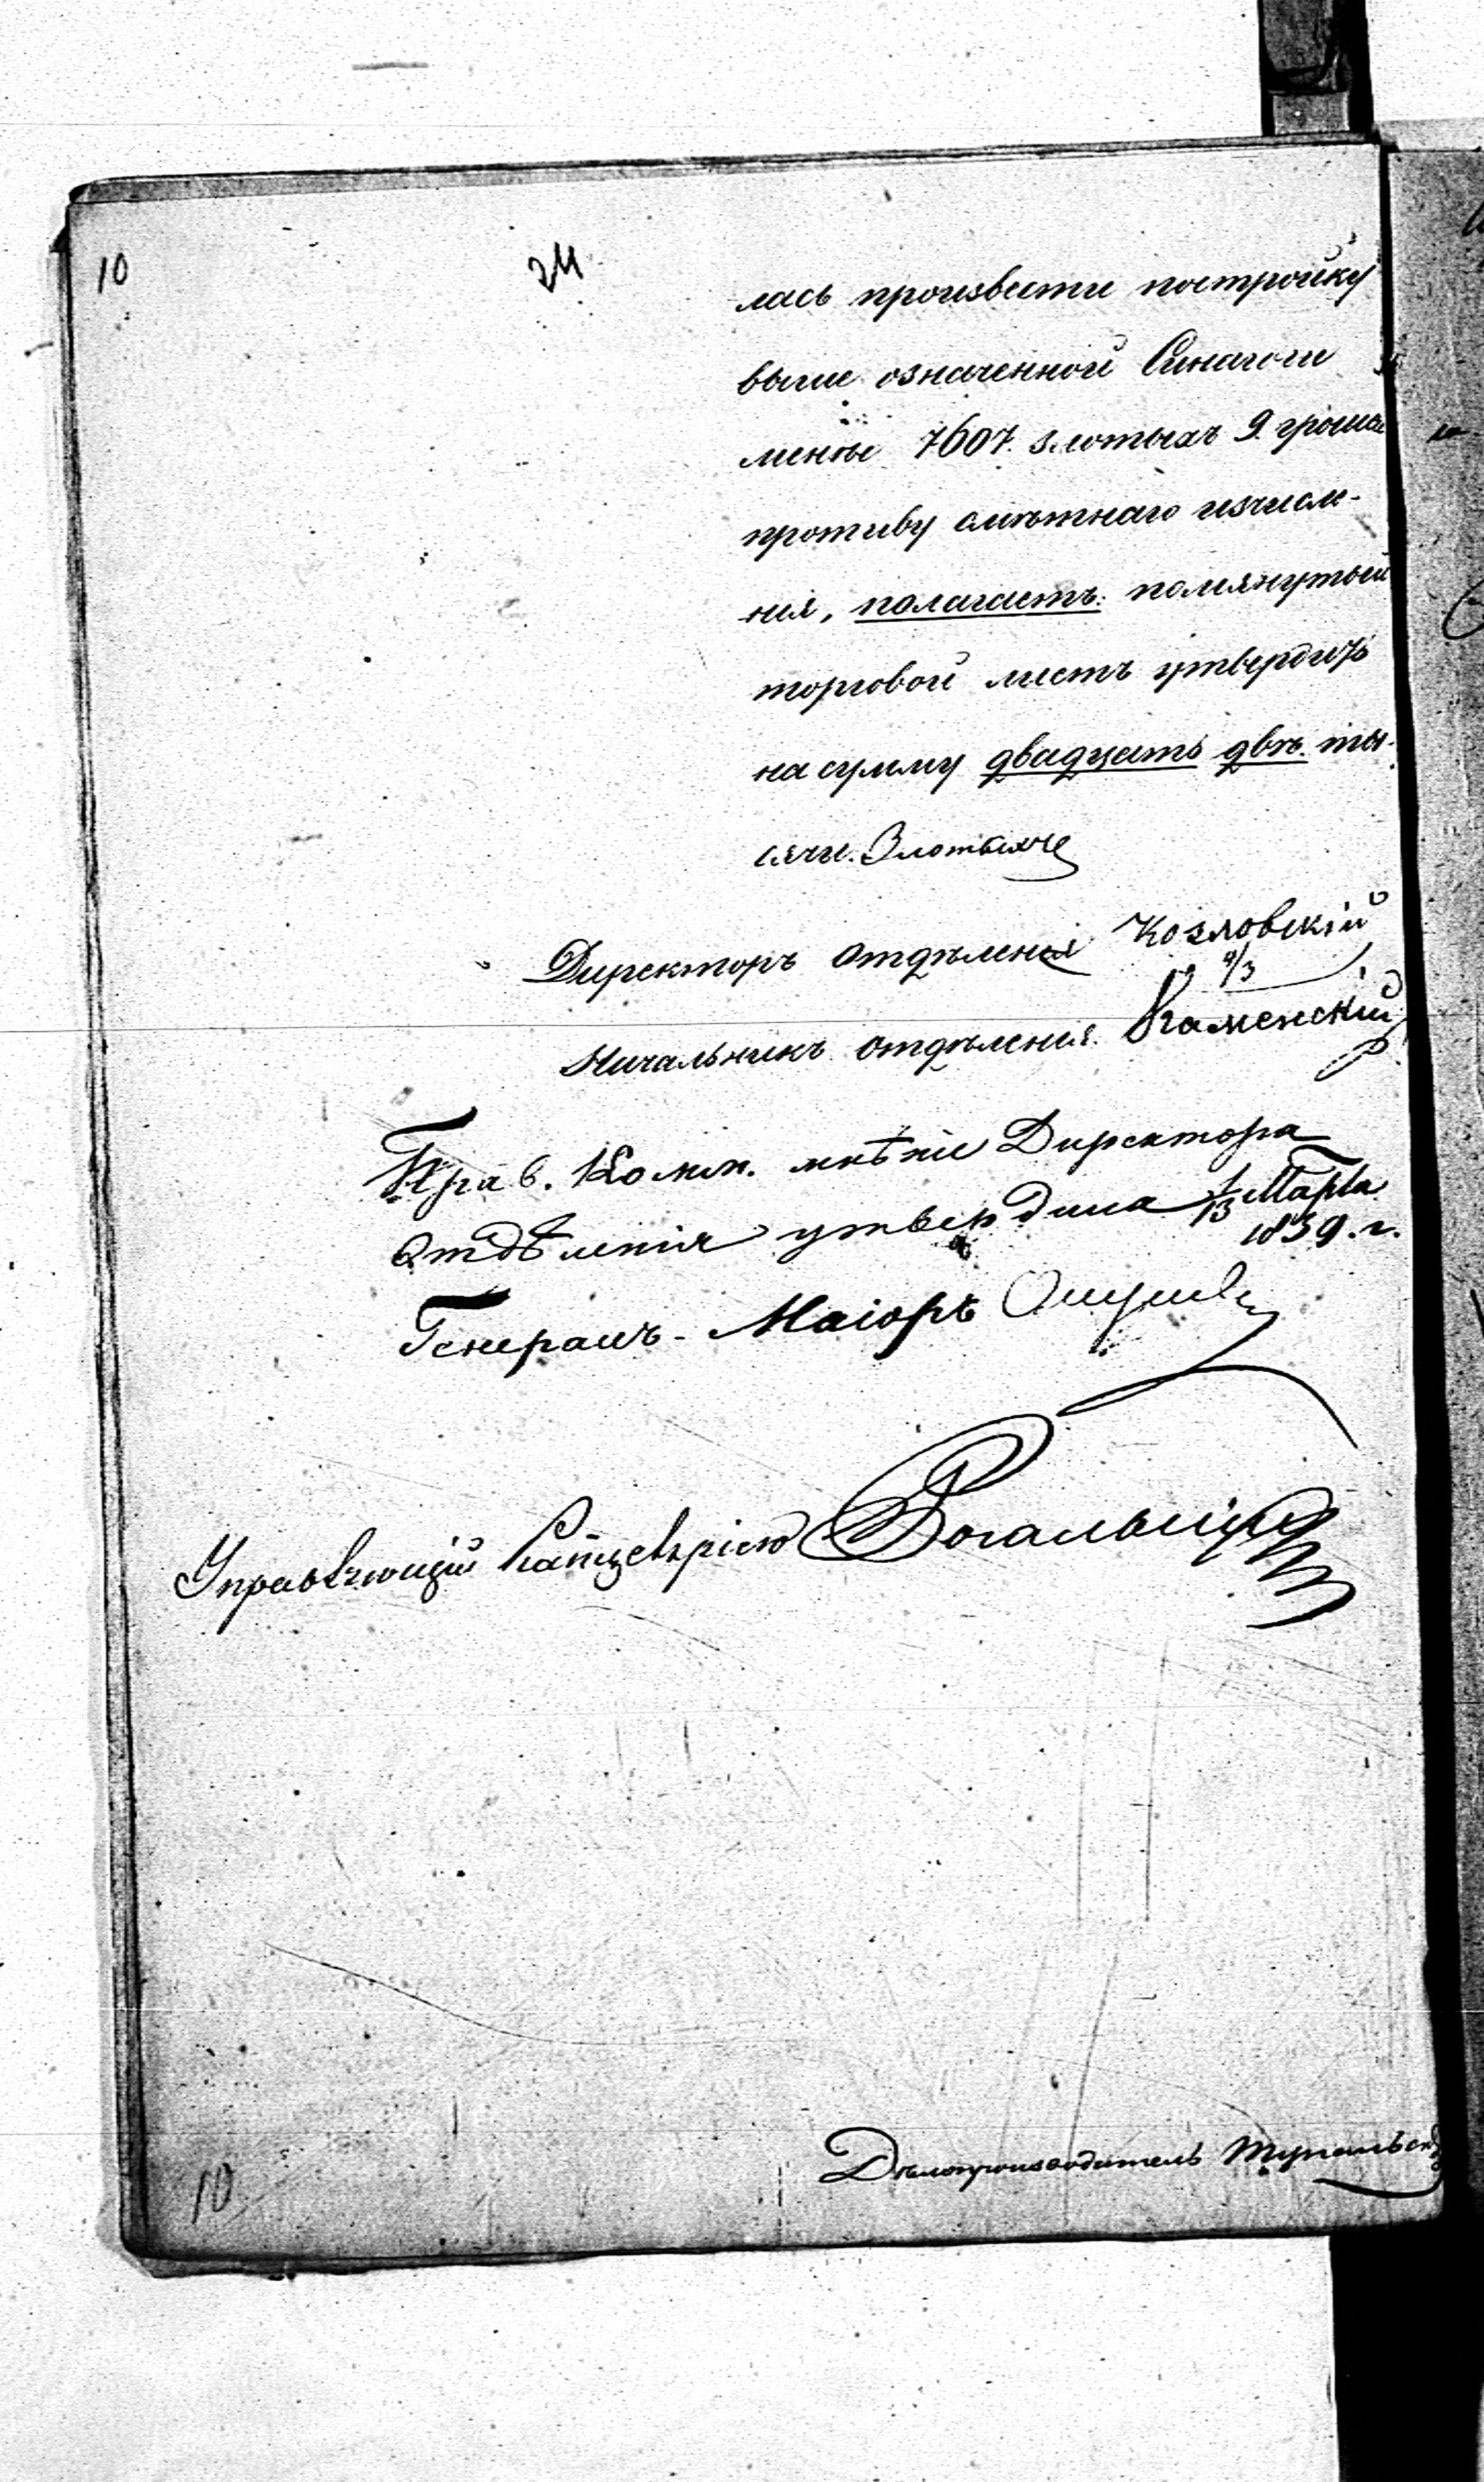 10
24
лась произвести постройку
выше означенной Синагоги
менѣе 7607. злотыхъ 9. грошей
противу смѣтнаго изчисле-
нія, полагаетъ: помянутый
торговой листъ утвердить
на сумму двадцать двѣ ты-
сячи. Злотыхъ
Директоръ Отдѣленія Козловскій
9/3
Начальникъ отдѣленія. Каменскій
Прав. Комм. мнѣніе Директора
Отдѣленія утвердила 1/13 Марта
1839. г.
Генералъ-Маіоръ
Управляющій Канцеляріею
Дѣлопроизводитель
10